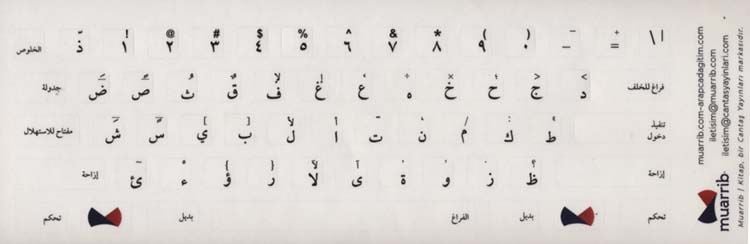 الخلوص ذ ! ١ @ ٢ # ٣ $ ٤ % ٥ ^ ٦ & ٧ * ٨ ( ٩ ) ٠ _ - + = | \
جدولة ض ص ث ق ف غ ع ه خ ح ج د فراغ للخلف
مفتاح للاستهلال ش س [ ي ] ب ل أ ا ت ن م ك : ط تنفيذ دخول
إزاحة ئ ء { ؤ } ر لا ى ة و ز ؟ ظ إزاحة
تحكم بديل الفراغ بديل تحكم
muarrib.com-arapcadagitim.com
iletisim@muarrib.com
iletisim@cantasyayinlari.com
muarrib
Muarrib / Kitap, bir Cantaş Yayınları markasıdır.